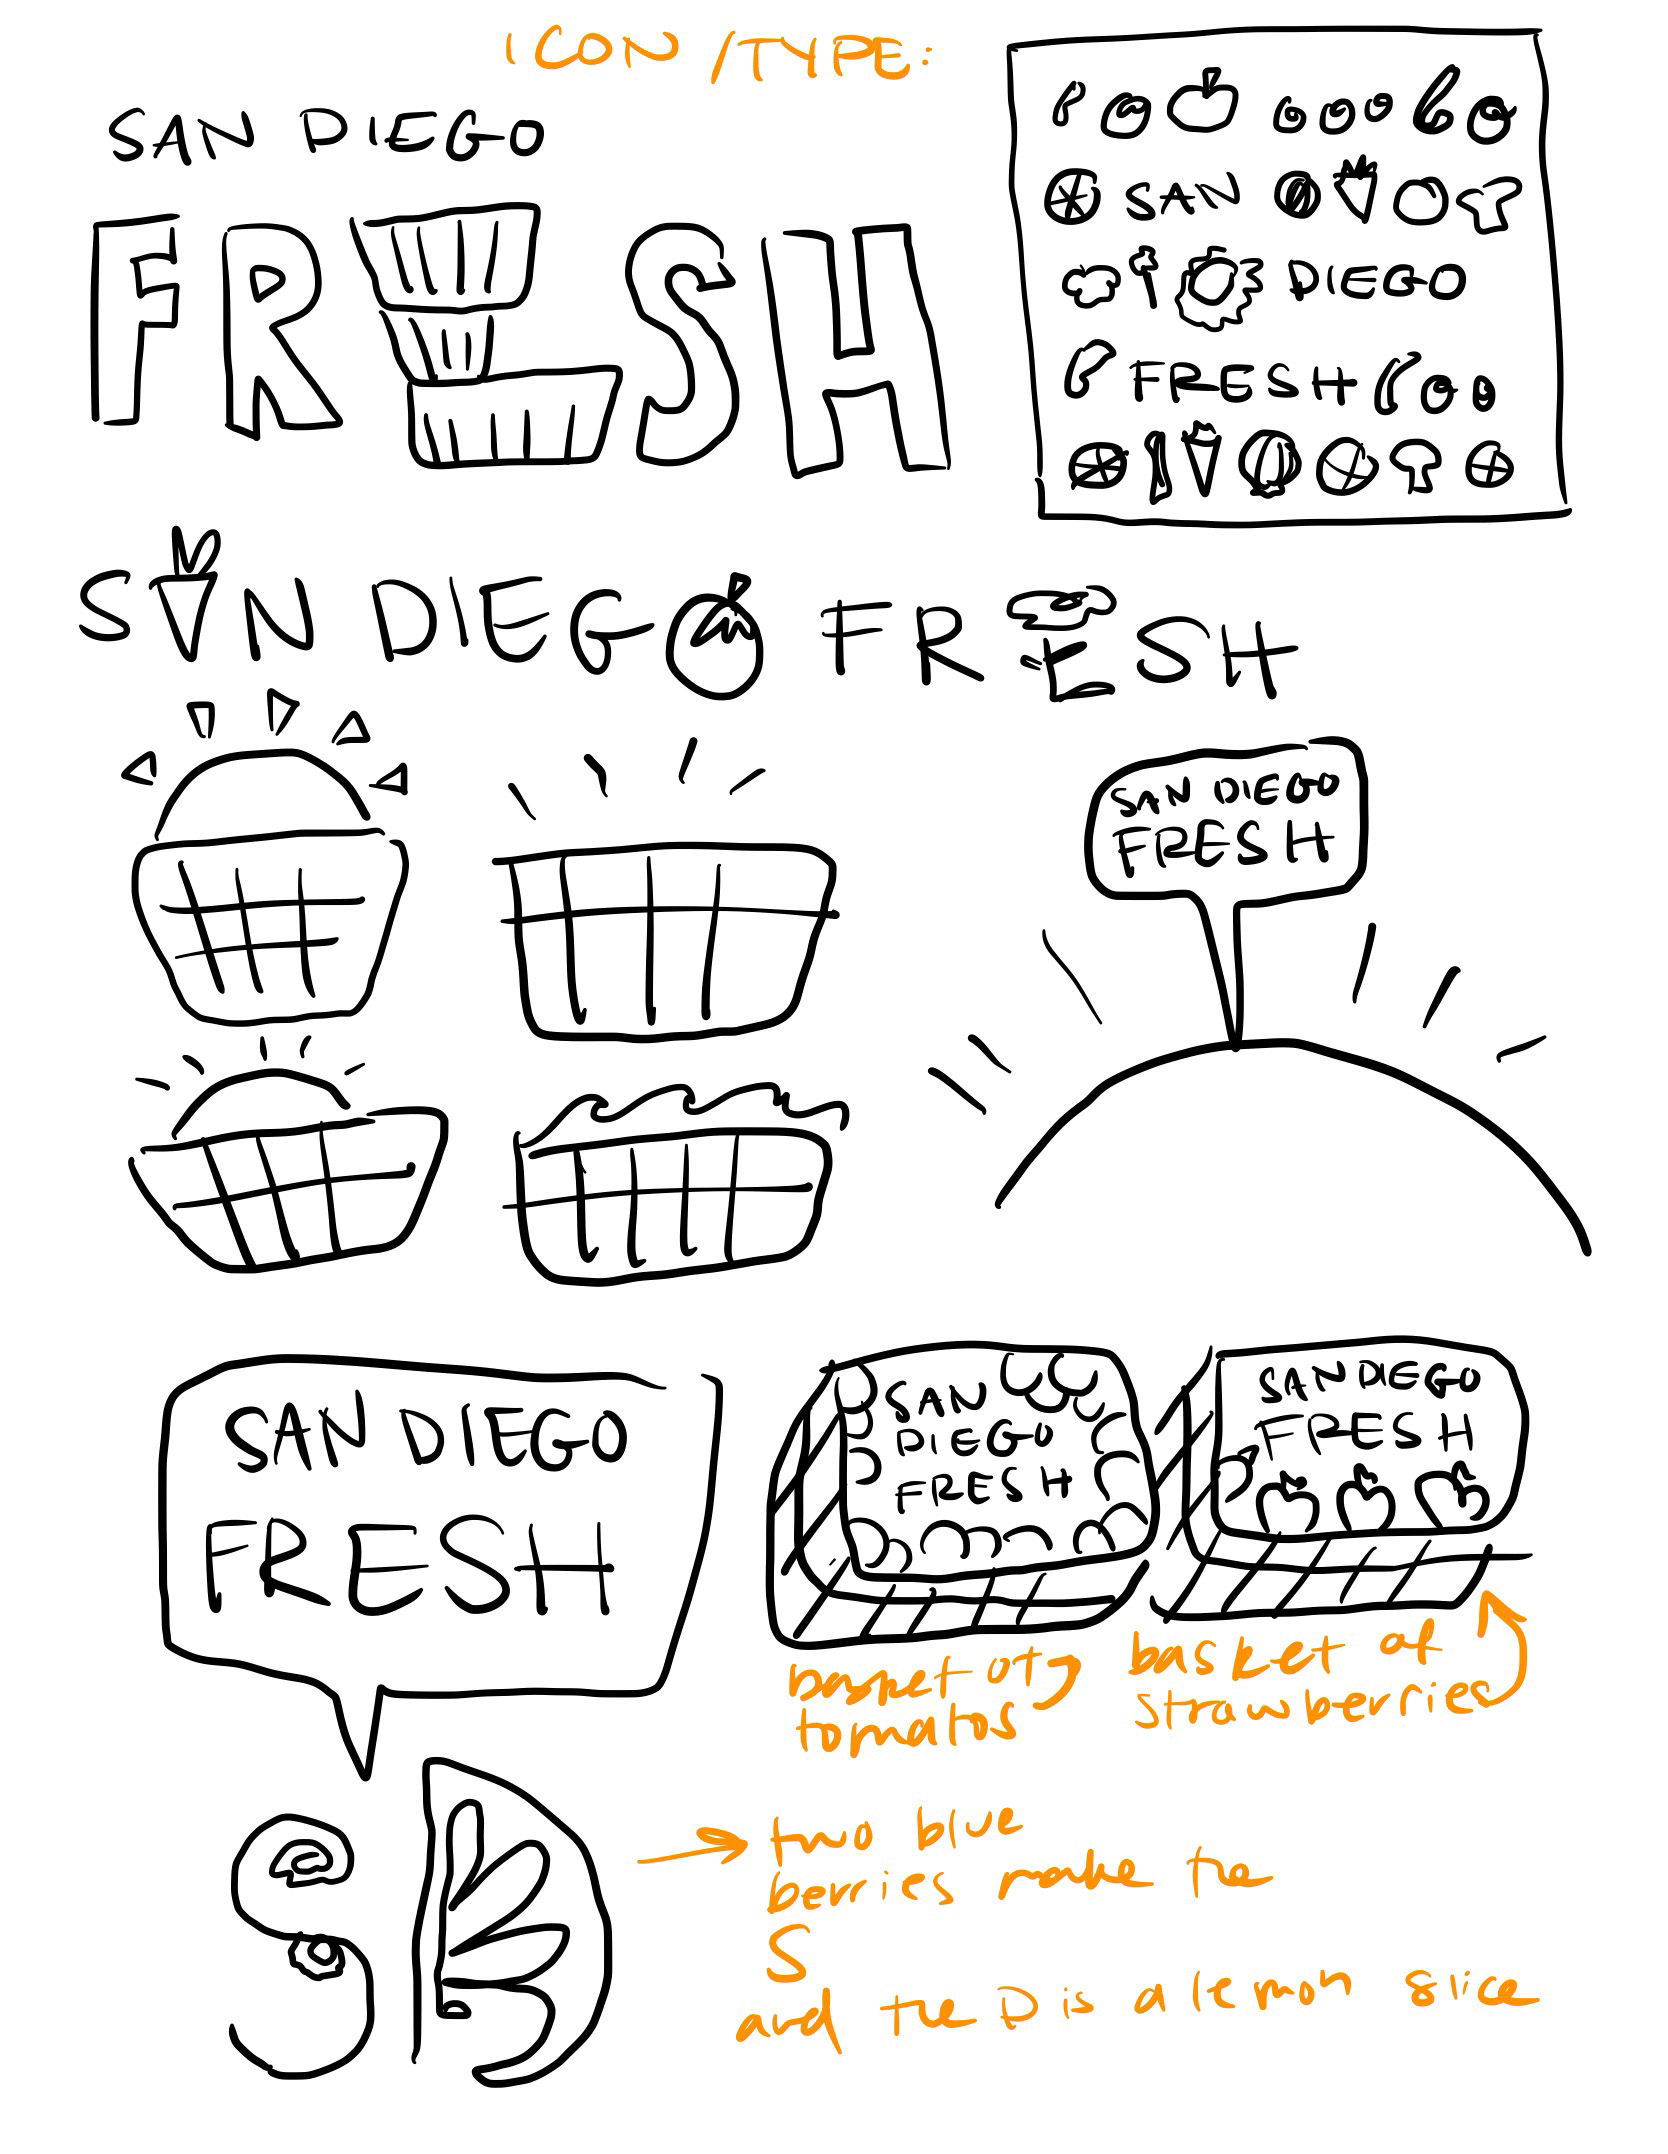 ICON/TYPE:
SAN DIEGO
FRESH
SAN
DIEGO
FRESH
SAN DIEGO FRESH
SAN DIEGO
FRESH
SAN DIEGO
FRESH
SAN
DIEGO
FRESH
SAN DIEGO
FRESH
basket of
tomatos
basket of
strawberries
SD
two blue
berries make the
S
and the D is a lemon slice